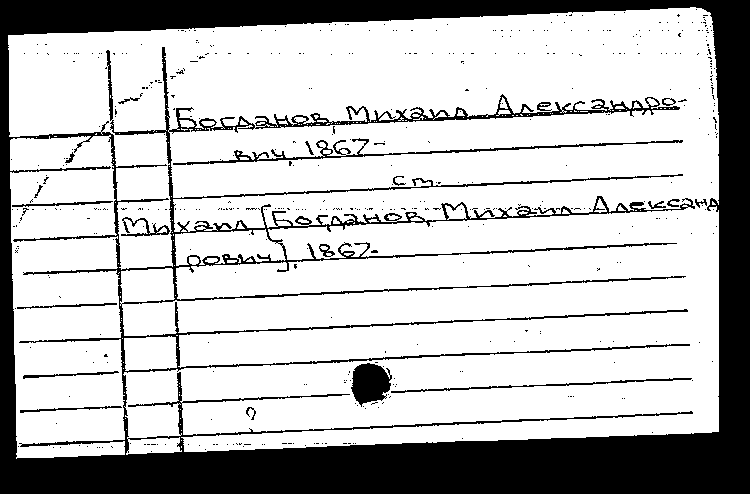 Богданов, Михаил Александро-
вич, 1867-
см.
Михаил, [Богданов, Михаил Александ
рович], 1867-
?